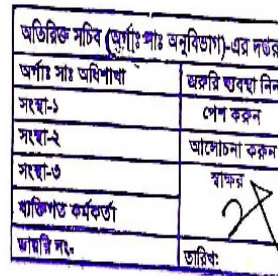 অতিরিক্ত সচিব (অর্গাঃ সাঃ অনুবিভাগ)-এর দপ্তর
অর্গাঃ সাঃ অধিশাখা
জরুরি ব্যবস্থা নিন
সংস্থা-১
পেশ করুন
সংস্থা-২
আলোচনা করুন
সংস্থা-৩
স্বাক্ষর
ব্যক্তিগত কর্মকর্তা
ডায়রি নং-
তারিখ: